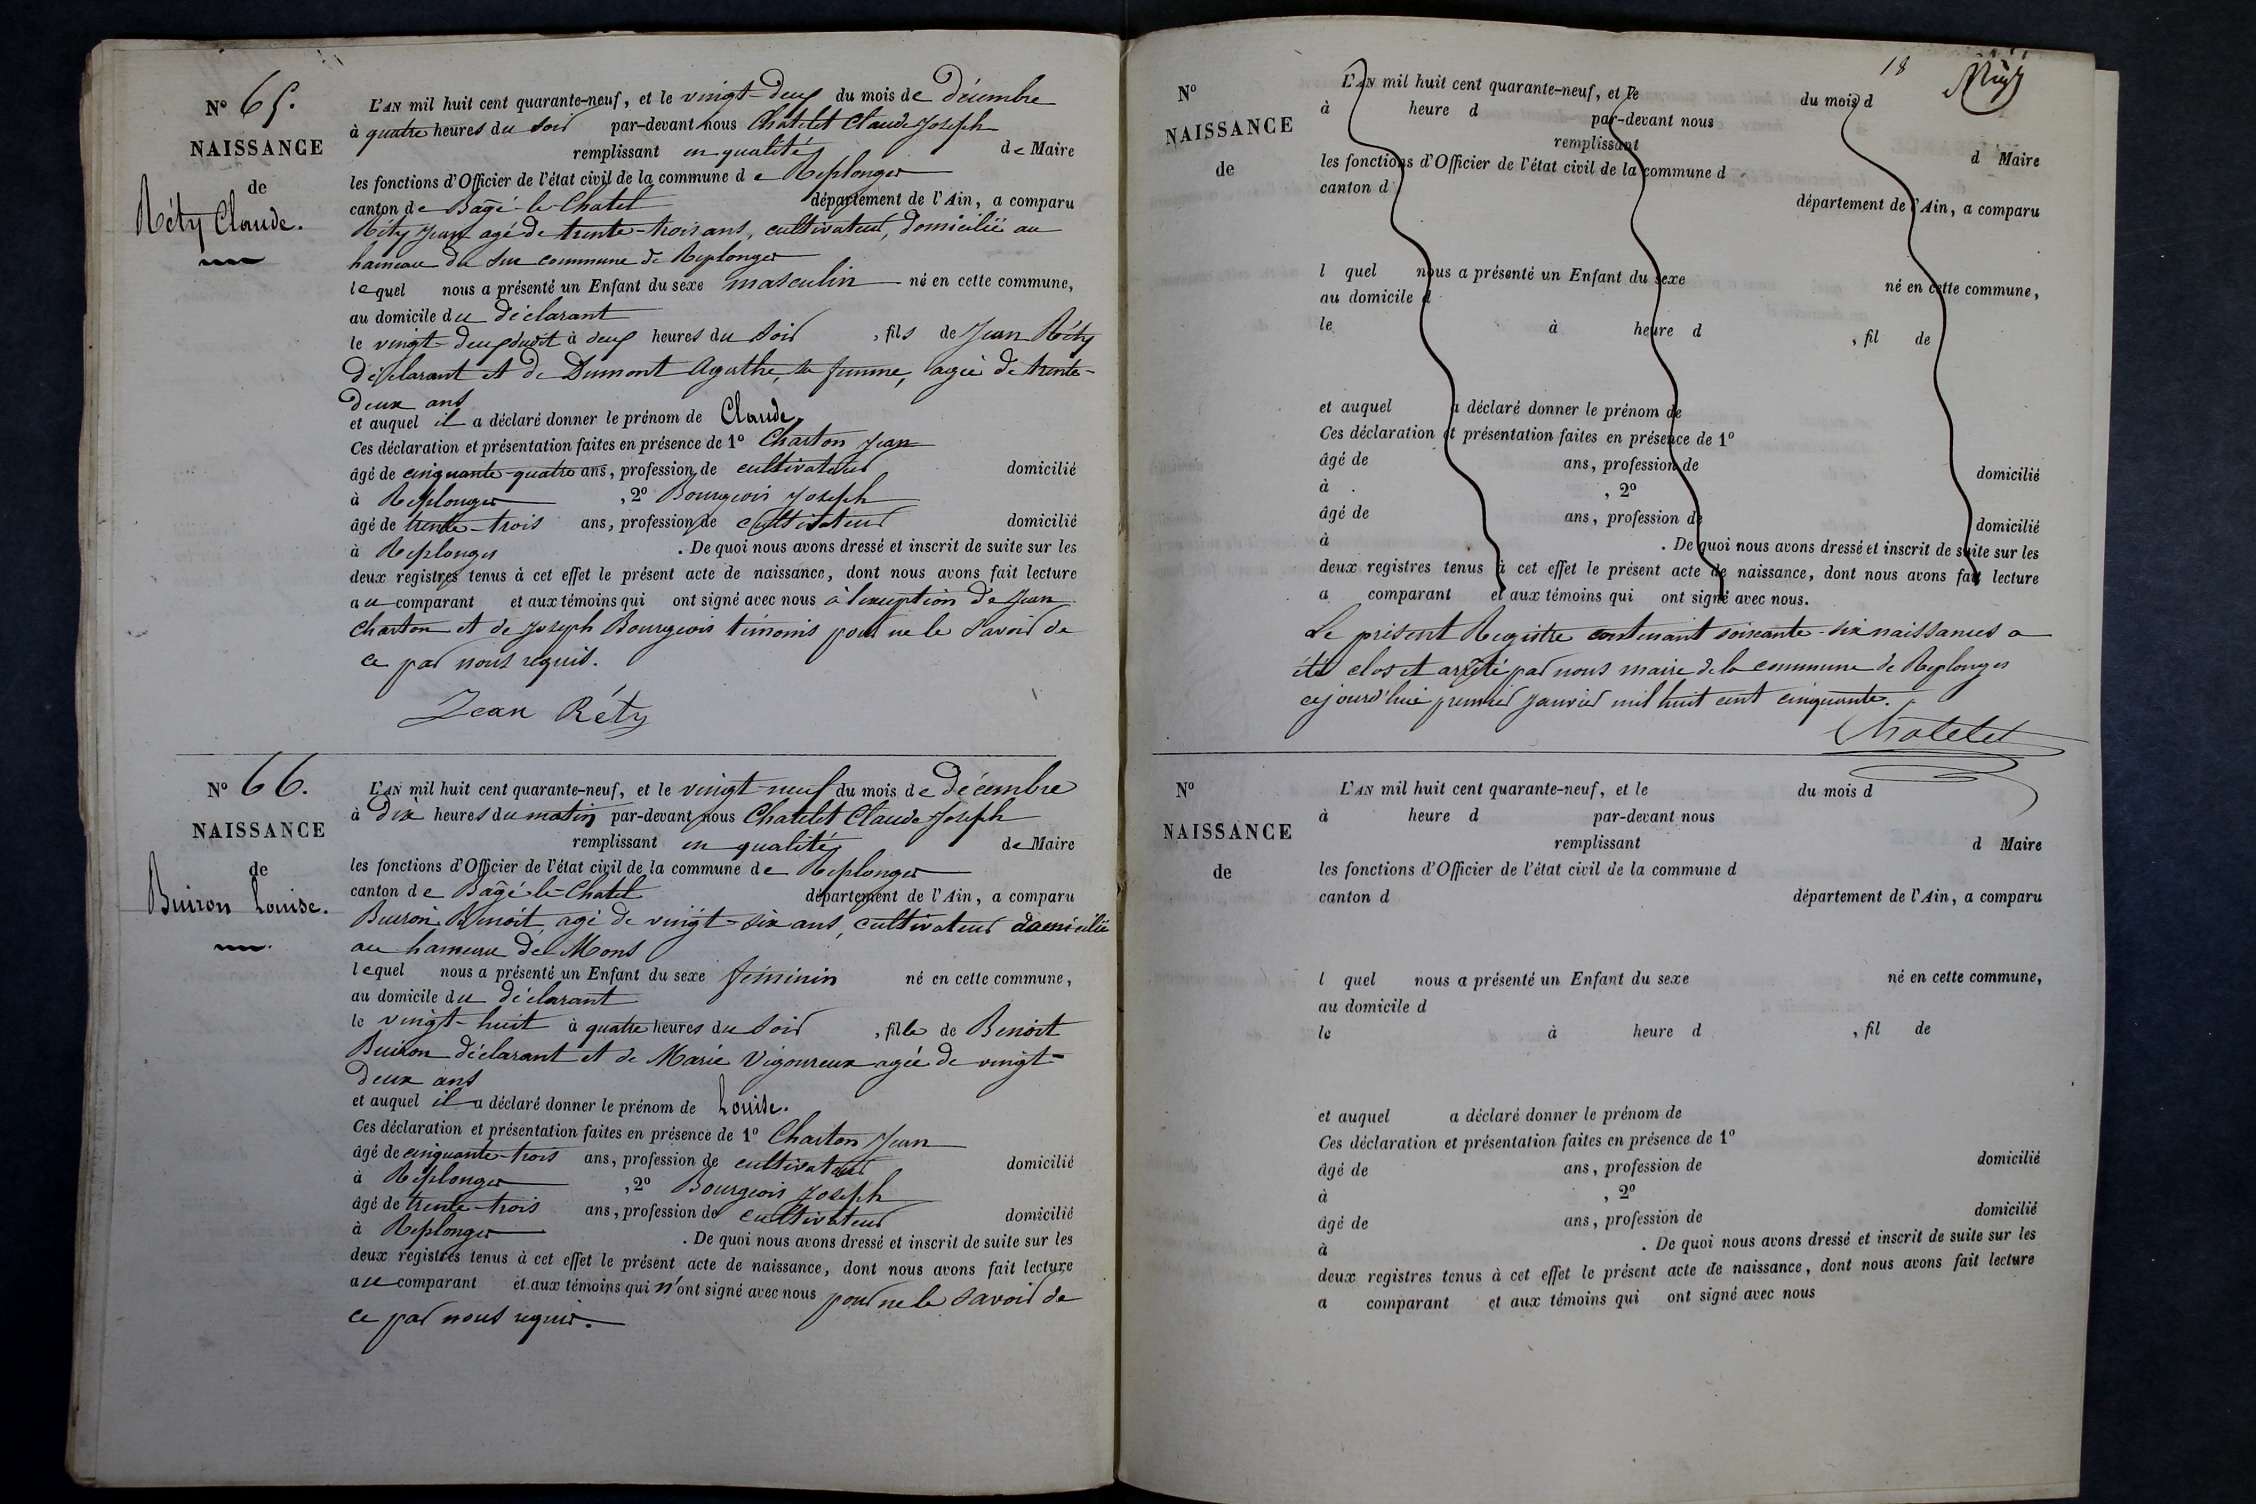 N° 65.
NAISSANCE
de
Réty Claude.
L'AN mil huit cent quarante-neuf, et le vingt-deux du mois de décembre
à quatre heures du soir par-devant nous Chatelet Claude Joseph
remplissant en qualité de Maire
les fonctions d'Officier de l'état civil de la commune de Replonges
canton de Bagé-le-Chatel département de l'Ain, a comparu
Réty Jean agé de trente-trois ans, cultivateur, domicilié au
hameau du Sur commune de Replonges
lequel nous a présenté un Enfant du sexe masculin né en cette commune,
au domicile du déclarant
le vingt-deux dudit à deux heures du soir, fils de Jean Réty
déclarant et de Dumont Agathe, sa femme, agée de trente-
deux ans
et auquel il a déclaré donner le prénom de Claude,
Ces déclaration et présentation faites en présence de 1° Charton Jean
âgé de cinquante-quatre ans, profession de cultivateur domicilié
à Replonges, 2° Bourgeois Joseph
âgé de trente-trois ans, profession de cultivateur domicilié
à Replonges. De quoi nous avons dressé et inscrit de suite sur les
deux registres tenus à cet effet le présent acte de naissance, dont nous avons fait lecture
au comparant et aux témoins qui ont signé avec nous à l'exception de Jean
Charton et de Joseph Bourgeois témoins pour ne le savoir de
ce par nous requis.
Jean Réty
N° 66.
NAISSANCE
de
Buiron Louise.
L'AN mil huit cent quarante-neuf, et le vingt-neuf du mois de décembre
à dix heures du matin par-devant nous Chatelet Claude Joseph
remplissant en qualité de Maire
les fonctions d'Officier de l'état civil de la commune de Replonges
canton de Bagé-le-Chatel département de l'Ain, a comparu
Buiron Benoit, agé de vingt-six ans, cultivateur domicilié
au hameau de Mons
lequel nous a présenté un Enfant du sexe féminin né en cette commune,
au domicile du déclarant
le vingt-huit à quatre heures du soir, fille de Benoit
Buiron déclarant et de Marie Vigoureux agée de vingt-
deux ans
et auquel il a déclaré donner le prénom de Louise.
Ces déclaration et présentation faites en présence de 1° Charton Jean
âgé de cinquante-trois ans, profession de cultivateur domicilié
à Replonges, 2° Bourgeois Joseph
âgé de trente-trois ans, profession de cultivateur domicilié
à Replonges. De quoi nous avons dressé et inscrit de suite sur les
deux registres tenus à cet effet le présent acte de naissance, dont nous avons fait lecture
au comparant et aux témoins qui n'ont signé avec nous pour ne le savoir de
ce par nous requis.
18
N°
NAISSANCE
de
L'AN mil huit cent quarante-neuf, et le du mois d
à heure d par-devant nous
remplissant d Maire
les fonctions d'Officier de l'état civil de la commune d
canton d département de l'Ain, a comparu
l quel nous a présenté un Enfant du sexe né en cette commune,
au domicile d
le à heure d , fil de
et auquel a déclaré donner le prénom de
Ces déclaration et présentation faites en présence de 1°
âgé de ans, profession de domicilié
à , 2°
âgé de ans, profession de domicilié
à . De quoi nous avons dressé et inscrit de suite sur les
deux registres tenus à cet effet le présent acte de naissance, dont nous avons fait lecture
a comparant et aux témoins qui ont signé avec nous.
Le présent Registre contenant soixante-six naissances a
été clos et arrêté par nous maire de la commune de Replonges
cejourd'hui premier janvier mil huit cent cinquante.
Chatelet
N°
NAISSANCE
de
L'AN mil huit cent quarante-neuf, et le du mois d
à heure d par-devant nous
remplissant d Maire
les fonctions d'Officier de l'état civil de la commune d
canton d département de l'Ain, a comparu
l quel nous a présenté un Enfant du sexe né en cette commune,
au domicile d
le à heure d , fil de
et auquel a déclaré donner le prénom de
Ces déclaration et présentation faites en présence de 1°
âgé de ans, profession de domicilié
à , 2°
âgé de ans, profession de domicilié
à . De quoi nous avons dressé et inscrit de suite sur les
deux registres tenus à cet effet le présent acte de naissance, dont nous avons fait lecture
a comparant et aux témoins qui ont signé avec nous